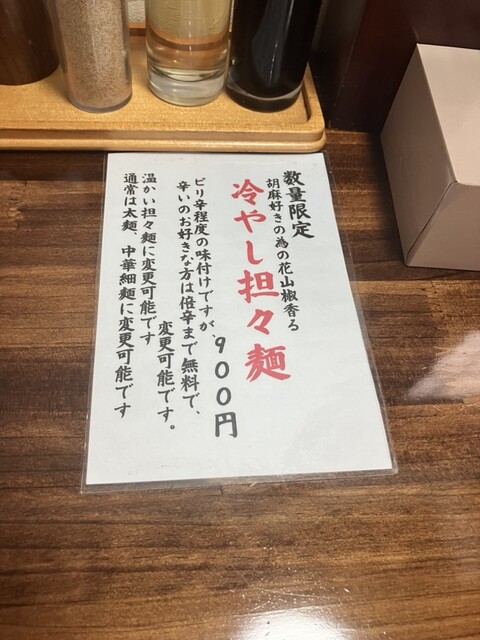 数量限定
胡麻好きの為の花山椒香る
冷やし担々麺
900円
ピリ辛程度の味付けですが、
辛いのお好きな方は倍辛まで無料で、
変更可能です。
温かい担々麺に変更可能です
通常は太麺、中華細麺に変更可能です